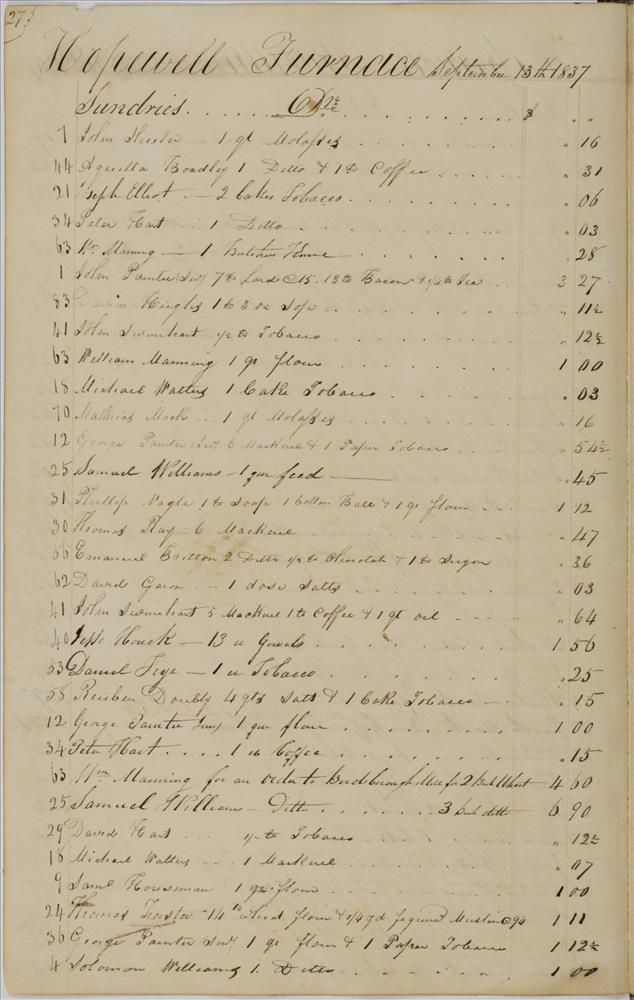 273
Hopewell Furnace September 13th 1837
Sundries . . . . . . Drs . . . . . . $ " "
7 John Sheeler . . 1 qt Molasses . . . . . " 16
44 Aquilla Bradley 1 Ditto & 1 lb Coffee . . . . . " 31
21 Joseph Elliot . — 2 Cakes Tobacco . . . . . " 06
34 Peter Hart . . 1 Ditto . . . . . " 03
63 Wm Manning — 1 . . . . . " 28
1 John Painter Junr 7 lb Lard @ 15 . 18 lb Bacon & 1/4 lb Tea . . 3 27
83 Davis Hughes 1 lb 3 oz Sope . . . . . " 11½
41 John Swinehart ½ lb Tobacco . . . . . " 12½
63 William Manning 1 qr flour . . . . . 1 00
18 Michael Watters 1 Cake Tobacco . . . . . " 03
70 Mathias Mock . . 1 qt Molasses . . . . . " 16
12 George Painter Junr 6 Mackrel & 1 Paper Tobacco . . . " 54½
25 Samuel Williams — 1 qur feed — " 45
31 Phillip Nagle 1 lb Soap 1 Cotton Ball & 1 qr flour . . . 1 12
30 Thomas Ray 6 Mackrel . . . . . " 47
56 Emanuel Britton 2 Ditto ½ lb Chocolate & 1 lb Sugar . " 36
62 David Garon . . 1 dose Salts . . . . . " 03
41 John Swinehart 5 Mackrel 1 lb Coffee & 1 qt oil . . . " 64
40 Jesse Houck — 13 u . . . . . 1 56
53 Daniel — 1 u Tobacco . . . . . " 25
58 Reuben Doubly 4 qts Salt & 1 Cake Tobacco . . " 15
12 George Painter Junr 1 qur flour . . . . . 1 00
34 Peter Hart . . . . 1 u Coffee . . . . . " 15
63 Wm Manning for an order to for 2 Bush Wheat 4 60
25 Samuel Williams — Ditto . . . . . 3 bush ditto 6 90
29 David Hart . . . ½ lb Tobacco . . . . . " 12½
18 Michael Watters . . . 1 Mackrel . . . . . " 07
9 Saml Houseman 1 qr flour . . . . . 1 00
24 Thomas 14 lb Wheat flour & 1/4 yd figured Muslin @ 94 1 11
36 George Painter Junr 1 qr flour & 1 Paper Tobacco 1 12½
4 Solomon Williams 1 Ditto . . . . . 1 00